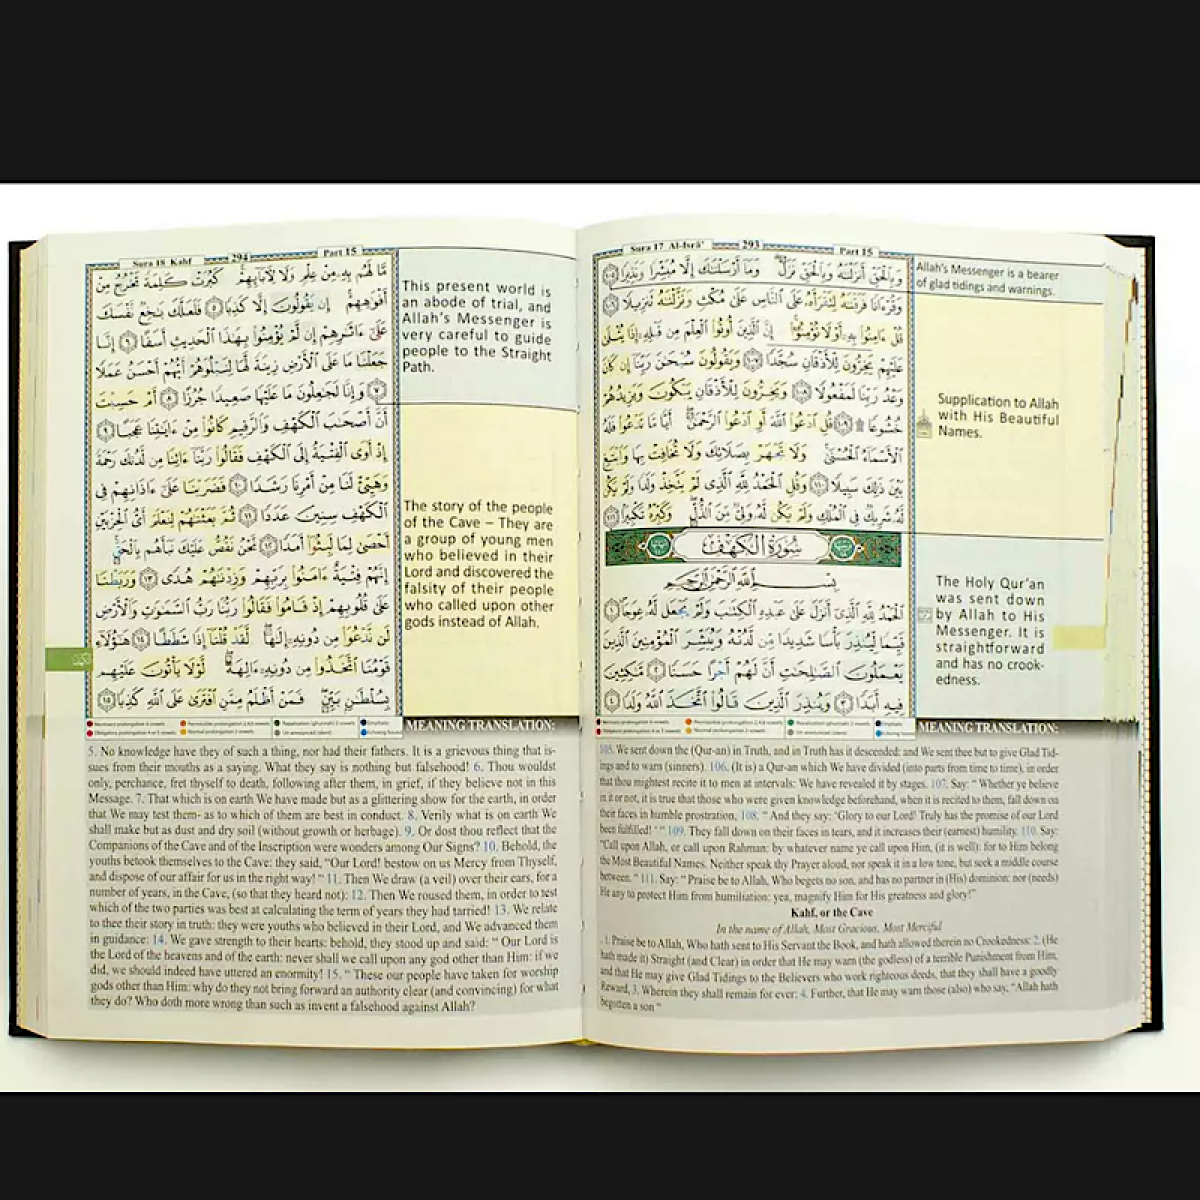 Sura 17 Al-Isrâ' 293 Part 15
وَبِالْحَقِّ أَنزَلْنَٰهُ وَبِالْحَقِّ نَزَلَ ۗ وَمَا أَرْسَلْنَٰكَ إِلَّا مُبَشِّرًا وَنَذِيرًا ١٠٥
وَقُرْءَانًا فَرَقْنَٰهُ لِتَقْرَأَهُ عَلَى النَّاسِ عَلَىٰ مُكْثٍ وَنَزَّلْنَٰهُ تَنزِيلًا ١٠٦
قُلْ ءَامِنُوا بِهِ أَوْ لَا تُؤْمِنُوا ۚ إِنَّ الَّذِينَ أُوتُوا الْعِلْمَ مِن قَبْلِهِ إِذَا يُتْلَىٰ
عَلَيْهِمْ يَخِرُّونَ لِلْأَذْقَانِ سُجَّدًا ١٠٧ وَيَقُولُونَ سُبْحَٰنَ رَبِّنَا إِن كَانَ
وَعْدُ رَبِّنَا لَمَفْعُولًا ١٠٨ وَيَخِرُّونَ لِلْأَذْقَانِ يَبْكُونَ وَيَزِيدُهُمْ
خُشُوعًا ۩ ١٠٩ قُلِ ادْعُوا اللَّهَ أَوِ ادْعُوا الرَّحْمَٰنَ ۖ أَيًّا مَّا تَدْعُوا فَلَهُ
الْأَسْمَاءُ الْحُسْنَىٰ ۚ وَلَا تَجْهَرْ بِصَلَاتِكَ وَلَا تُخَافِتْ بِهَا وَابْتَغِ
بَيْنَ ذَٰلِكَ سَبِيلًا ١١٠ وَقُلِ الْحَمْدُ لِلَّهِ الَّذِي لَمْ يَتَّخِذْ وَلَدًا وَلَمْ يَكُن
لَّهُ شَرِيكٌ فِي الْمُلْكِ وَلَمْ يَكُن لَّهُ وَلِيٌّ مِّنَ الذُّلِّ ۖ وَكَبِّرْهُ تَكْبِيرًا ١١١
سُورَةُ الْكَهْفِ
بِسْمِ اللَّهِ الرَّحْمَٰنِ الرَّحِيمِ
الْحَمْدُ لِلَّهِ الَّذِي أَنزَلَ عَلَىٰ عَبْدِهِ الْكِتَٰبَ وَلَمْ يَجْعَل لَّهُ عِوَجًا ١
قَيِّمًا لِّيُنذِرَ بَأْسًا شَدِيدًا مِّن لَّدُنْهُ وَيُبَشِّرَ الْمُؤْمِنِينَ الَّذِينَ
يَعْمَلُونَ الصَّٰلِحَٰتِ أَنَّ لَهُمْ أَجْرًا حَسَنًا ٢ مَّٰكِثِينَ
فِيهِ أَبَدًا ٣ وَيُنذِرَ الَّذِينَ قَالُوا اتَّخَذَ اللَّهُ وَلَدًا ٤
Allah's Messenger is a bearer
of glad tidings and warnings.
Supplication to Allah
with His Beautiful
Names.
The Holy Qur'an
was sent down
by Allah to His
Messenger. It is
straightforward
and has no crook-
edness.
MEANING TRANSLATION:
105. We sent down the (Qur-an) in Truth, and in Truth has it descended: and We sent thee but to give Glad Tid-
ings and to warn (sinners). 106. (It is) a Qur-an which We have divided (into parts from time to time), in order
that thou mightest recite it to men at intervals: We have revealed it by stages. 107. Say: " Whether ye believe
in it or not, it is true that those who were given knowledge beforehand, when it is recited to them, fall down on
their faces in humble prostration, 108. " And they say: 'Glory to our Lord! Truly has the promise of our Lord
been fulfilled! ' " 109. They fall down on their faces in tears, and it increases their (earnest) humility. 110. Say:
"Call upon Allah, or call upon Rahman: by whatever name ye call upon Him, (it is well): for to Him belong
the Most Beautiful Names. Neither speak thy Prayer aloud, nor speak it in a low tone, but seek a middle course
between. " 111. Say: " Praise be to Allah, Who begets no son, and has no partner in (His) dominion: nor (needs)
He any to protect Him from humiliation: yea, magnify Him for His greatness and glory!"
Kahf, or the Cave
In the name of Allah, Most Gracious, Most Merciful
1. Praise be to Allah, Who hath sent to His Servant the Book, and hath allowed therein no Crookedness: 2. (He
hath made it) Straight (and Clear) in order that He may warn (the godless) of a terrible Punishment from Him,
and that He may give Glad Tidings to the Believers who work righteous deeds, that they shall have a goodly
Reward, 3. Wherein they shall remain for ever: 4. Further, that He may warn those (also) who say, "Allah hath
begotten a son "
Sura 18 Kahf 294 Part 15
مَّا لَهُم بِهِ مِنْ عِلْمٍ وَلَا لِآبَائِهِمْ ۚ كَبُرَتْ كَلِمَةً تَخْرُجُ مِنْ
أَفْوَٰهِهِمْ ۚ إِن يَقُولُونَ إِلَّا كَذِبًا ٥ فَلَعَلَّكَ بَٰخِعٌ نَّفْسَكَ
عَلَىٰ ءَاثَٰرِهِمْ إِن لَّمْ يُؤْمِنُوا بِهَٰذَا الْحَدِيثِ أَسَفًا ٦ إِنَّا
جَعَلْنَا مَا عَلَى الْأَرْضِ زِينَةً لَّهَا لِنَبْلُوَهُمْ أَيُّهُمْ أَحْسَنُ عَمَلًا
٧ وَإِنَّا لَجَٰعِلُونَ مَا عَلَيْهَا صَعِيدًا جُرُزًا ٨ أَمْ حَسِبْتَ
أَنَّ أَصْحَٰبَ الْكَهْفِ وَالرَّقِيمِ كَانُوا مِنْ ءَايَٰتِنَا عَجَبًا ٩
إِذْ أَوَى الْفِتْيَةُ إِلَى الْكَهْفِ فَقَالُوا رَبَّنَا ءَاتِنَا مِن لَّدُنكَ رَحْمَةً
وَهَيِّئْ لَنَا مِنْ أَمْرِنَا رَشَدًا ١٠ فَضَرَبْنَا عَلَىٰ ءَاذَانِهِمْ فِي
الْكَهْفِ سِنِينَ عَدَدًا ١١ ثُمَّ بَعَثْنَٰهُمْ لِنَعْلَمَ أَيُّ الْحِزْبَيْنِ
أَحْصَىٰ لِمَا لَبِثُوا أَمَدًا ١٢ نَّحْنُ نَقُصُّ عَلَيْكَ نَبَأَهُم بِالْحَقِّ ۚ
إِنَّهُمْ فِتْيَةٌ ءَامَنُوا بِرَبِّهِمْ وَزِدْنَٰهُمْ هُدًى ١٣ وَرَبَطْنَا
عَلَىٰ قُلُوبِهِمْ إِذْ قَامُوا فَقَالُوا رَبُّنَا رَبُّ السَّمَٰوَٰتِ وَالْأَرْضِ
لَن نَّدْعُوَا مِن دُونِهِ إِلَٰهًا ۖ لَّقَدْ قُلْنَا إِذًا شَطَطًا ١٤ هَٰؤُلَاءِ
قَوْمُنَا اتَّخَذُوا مِن دُونِهِ ءَالِهَةً ۖ لَّوْلَا يَأْتُونَ عَلَيْهِم
بِسُلْطَٰنٍ بَيِّنٍ ۖ فَمَنْ أَظْلَمُ مِمَّنِ افْتَرَىٰ عَلَى اللَّهِ كَذِبًا ١٥
This present world is
an abode of trial, and
Allah's Messenger is
very careful to guide
people to the Straight
Path.
The story of the people
of the Cave – They are
a group of young men
who believed in their
Lord and discovered the
falsity of their people
who called upon other
gods instead of Allah.
MEANING TRANSLATION:
5. No knowledge have they of such a thing, nor had their fathers. It is a grievous thing that is-
sues from their mouths as a saying. What they say is nothing but falsehood! 6. Thou wouldst
only, perchance, fret thyself to death, following after them, in grief, if they believe not in this
Message. 7. That which is on earth We have made but as a glittering show for the earth, in order
that We may test them- as to which of them are best in conduct. 8. Verily what is on earth We
shall make but as dust and dry soil (without growth or herbage). 9. Or dost thou reflect that the
Companions of the Cave and of the Inscription were wonders among Our Signs? 10. Behold, the
youths betook themselves to the Cave: they said, "Our Lord! bestow on us Mercy from Thyself,
and dispose of our affair for us in the right way! " 11. Then We draw (a veil) over their ears, for a
number of years, in the Cave, (so that they heard not): 12. Then We roused them, in order to test
which of the two parties was best at calculating the term of years they had tarried! 13. We relate
to thee their story in truth: they were youths who believed in their Lord, and We advanced them
in guidance: 14. We gave strength to their hearts: behold, they stood up and said: " Our Lord is
the Lord of the heavens and of the earth: never shall we call upon any god other than Him: if we
did, we should indeed have uttered an enormity! 15. " These our people have taken for worship
gods other than Him: why do they not bring forward an authority clear (and convincing) for what
they do? Who doth more wrong than such as invent a falsehood against Allah?